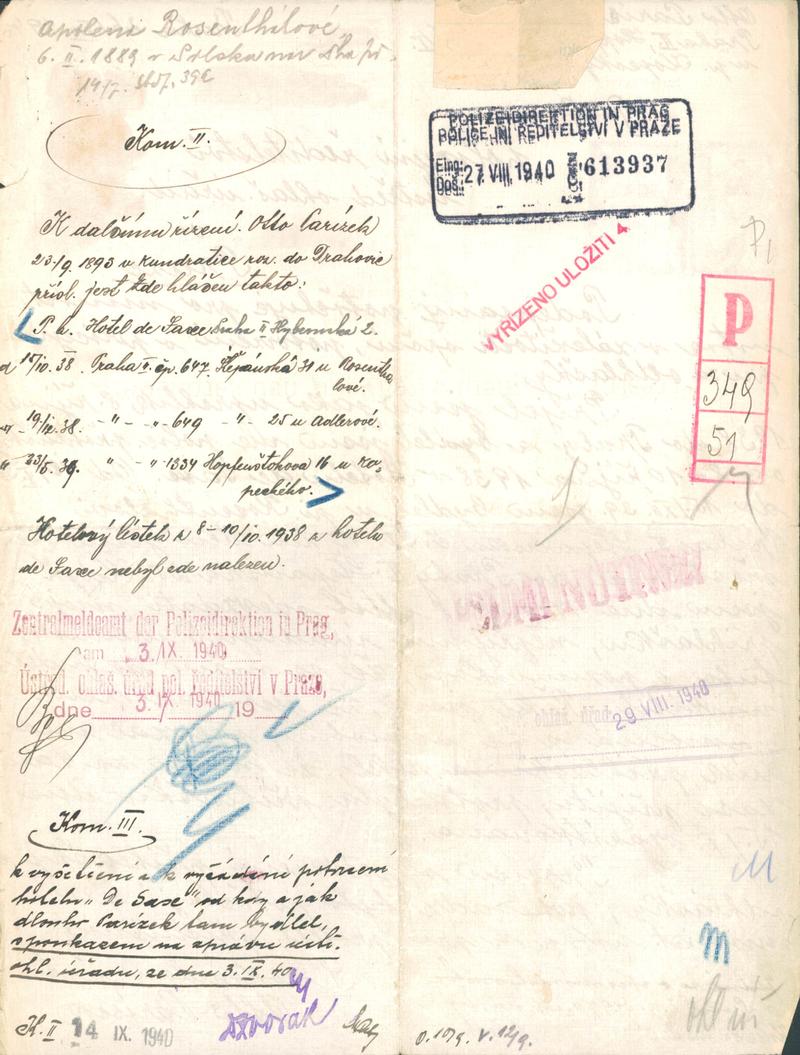 Apoleni Rosenthálové
6. II. 1889 v
14/7.
Kom. II.
K dalšímu řízení. Otto Parízek
23/9. 1893 v Kundratice roz. do Prahovic
přísl. jest zde hlášen takto:
P. b. Hotel de Saxe Praha II Hybernská 2.
od 15/10. 38. Praha II. čp. 647. Štěpánská 31 u Rosenthá
lové.
" 19/ 38. -"- -"- 649 -"- 25 u Adlerové.
" 23/5. 39. -"- -"- 1334 Hopfenštokova 16 u Ko-
peckého.
Hotelový lístek z 8-10/10. 1938 z hotelu
de Saxe nebyl zde nalezen.
Zentralmeldeamt der Polizeidirektion in Prag,
am 3./IX. 1940
Ústřed. ohlaš. úřad pol. ředitelství v Praze,
dne 3./IX. 1940 19
Kom. III.
k vyšetření a k vyžádání potvrzení
hotelu „De Saxe" od kdy a jak
dlouho Parízek tam bydlel,
s poukazem na zprávu ústř.
ohl. úřadu, ze dne 3. IX. 40
K. II 14 IX. 1940 Dvorak
POLIZEIDIREKTION IN PRAG
POLICEJNÍ ŘEDITELSTVÍ V PRAZE
Eing:
Doš.: 27 VIII. 1940 613937
VYŘÍZENO ULOŽITI 4
P
349
51
ohlaš. úřad 29 VIII. 1940
M
m